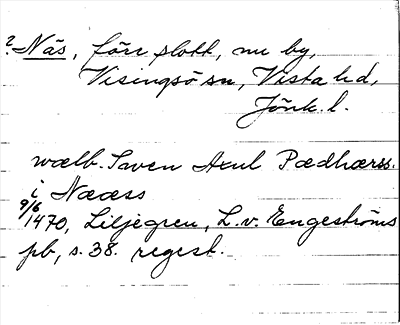 ? Näs, förr slott, nu by,
Visingsö sn, Vista hd,
Jönk. l.
wælb. Swen Axul Pædhærss.
i Nææss
9/6
1470, Liljegren, L. v. Engeströms
pb, s. 38. regest.